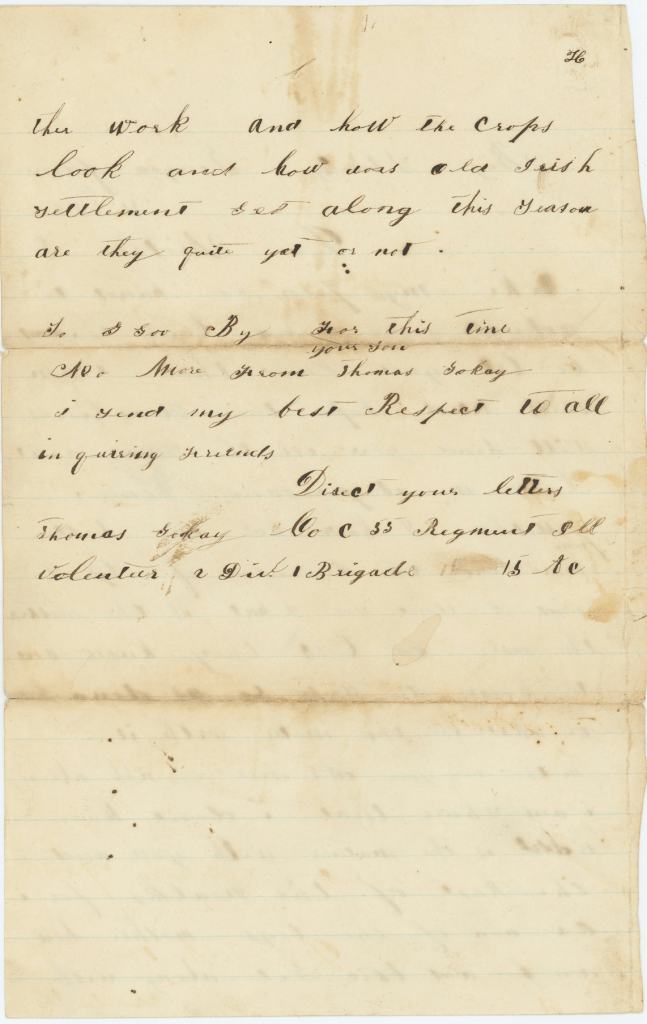 ther work and how the Crops
look and how does old Irish
settlement get along this season
are they quite yet or not.
So I Goo By For this time
your son
No More From Thomas Gokay
i send my best Respect to all
in quiring Freiends
Direct your letters
Thomas Gokay Co C 55 Regment Ill
volenteer 2 Div. 1 Brigade 15 AC